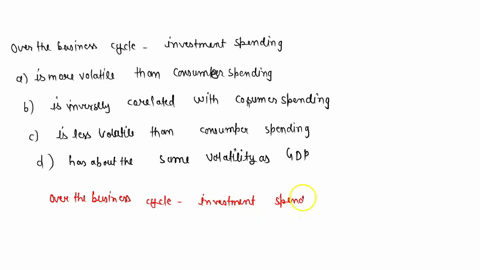 Over the business cycle - investment spending
a) is more volatile than consumper spending
b) is inversly corelated with copumer spending
c) is less volatile than consumper spending
d) has about the same volatility as GDP
over the business cycle - investment spend